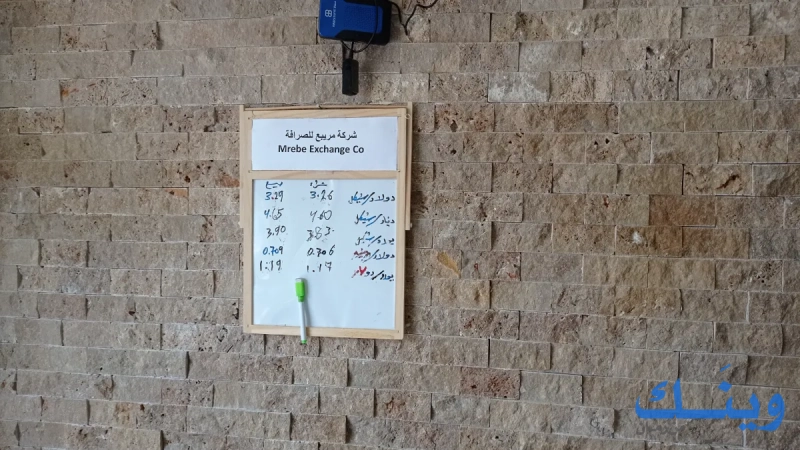 شركة مربيع للصرافة
Mrebe Exchange Co
شراء بيع
دولار/شيكل 3.26 3.29
دينار/شيكل 4.60 4.65
يورو/شيكل 3.83 3.90
دولار/دينار 0.706 0.709
يورو/دولار 1.17 1.19
وينك